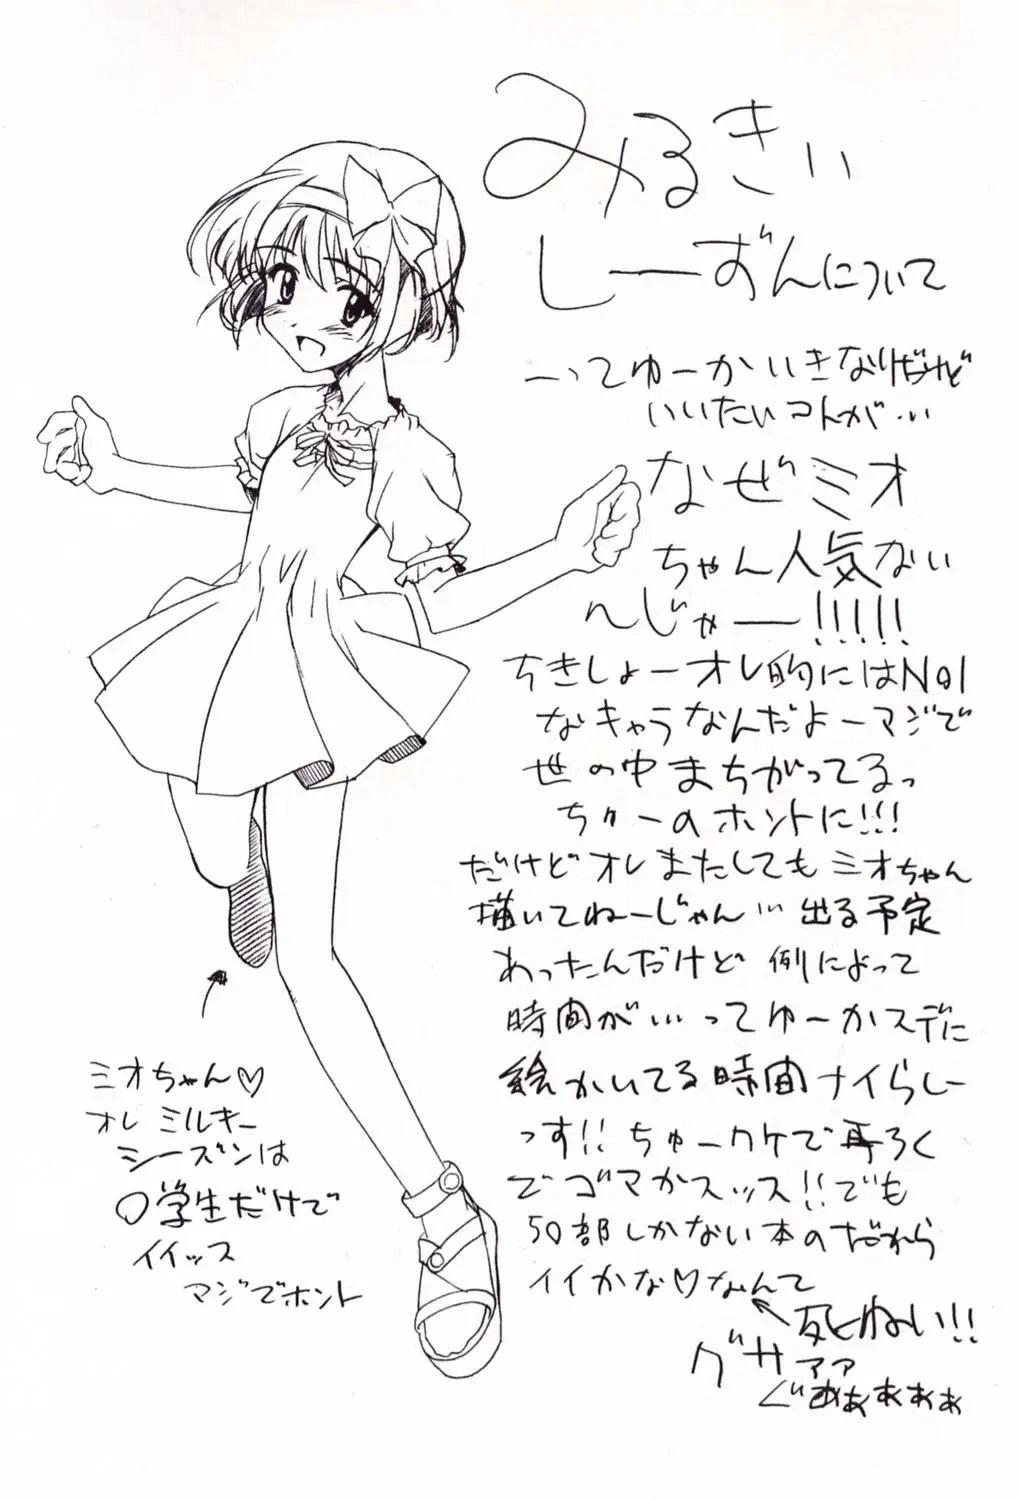 みるきい
しーずんについて
ーってゆーかいきなりだけど
いいたいコトが…
なぜミオ
ちゃん人気ない
んじゃー!!!!!
ちきしょーオレ的にはNo1
なキャラなんだよーマジで
世の中まちがってるっ
ちゅーのホントに!!!
だけどオレまたしてもミオちゃん
描いてねーじゃん…出る予定
あったんだけど 例によって
時間が…ってゆーかスデに
絵かいてる時間ナイらしー
っす!!ちゅーワケで
でゴマかスッス!!でも
50部しかない本のだから
イイかな♡なんて
死ねい!!
グサァァ
ぐああぁぁぁぁ
ミオちゃん♡
オレ ミルキー
シーズンは
〇学生だけで
イイッス
マジでホント